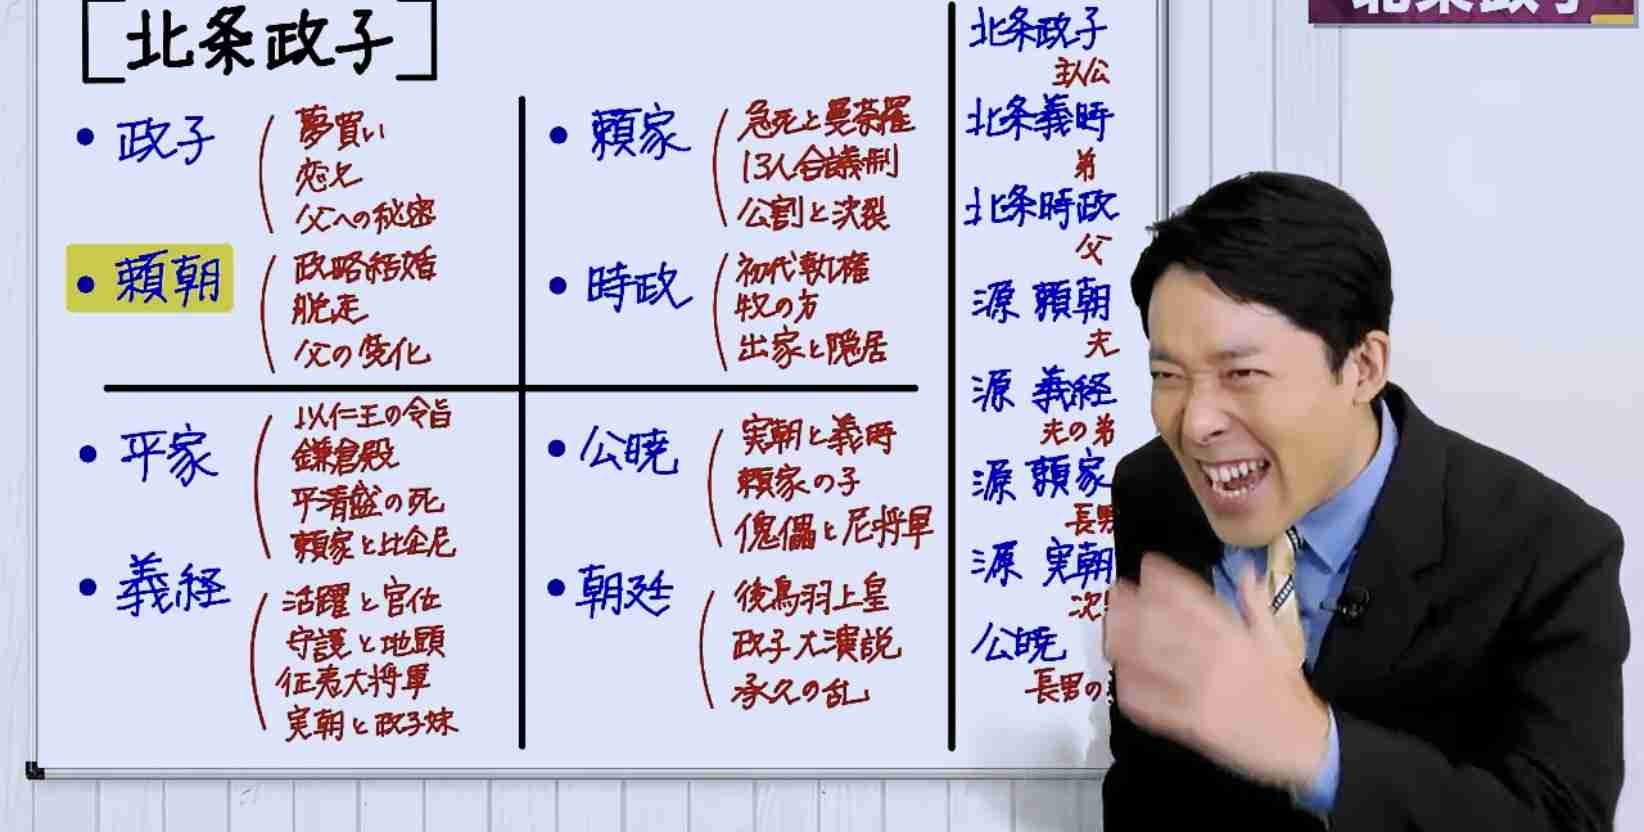 [北条政子]
• 政子
夢買い
恋文
父への秘密
• 頼朝
政略結婚
脱走
父の変化
• 平家
以仁王の令旨
鎌倉殿
平清盛の死
頼家と比企尼
• 義経
活躍と官位
守護と地頭
征夷大将軍
実朝と政子妹
• 頼家
急死と曼荼羅
13人合議制
公割と決裂
• 時政
初代執権
牧の方
出家と隠居
• 公暁
実朝と義時
頼家の子
傀儡と尼将軍
• 朝廷
後鳥羽上皇
政子大演説
承久の乱
北条政子
主人公
北条義時
弟
北条時政
父
源 頼朝
夫
源 義経
夫の弟
源 頼家
長男
源 実朝
次
公暁
長男の
北条政子